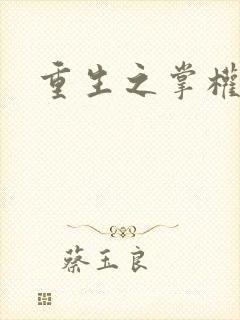 重生之掌權
蔡玉良